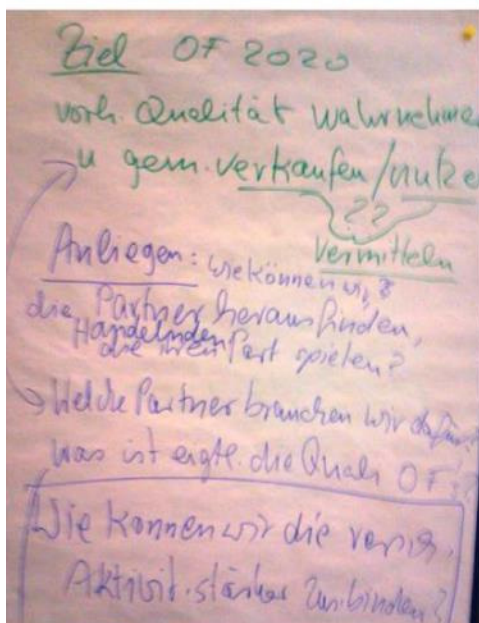 Ziel OF 2020
vorh. Qualität wahrnehmen
u gem. verkaufen/nutze
??
vermitteln
Anliegen: wie können wir
die Partner herausfinden,
Handelnden
die ihren Part spielen?
Welche Partner brauchen wir dafür?
was ist eigtl. die Quali OF?
Wie können wir die versch.
Aktivit. stärker